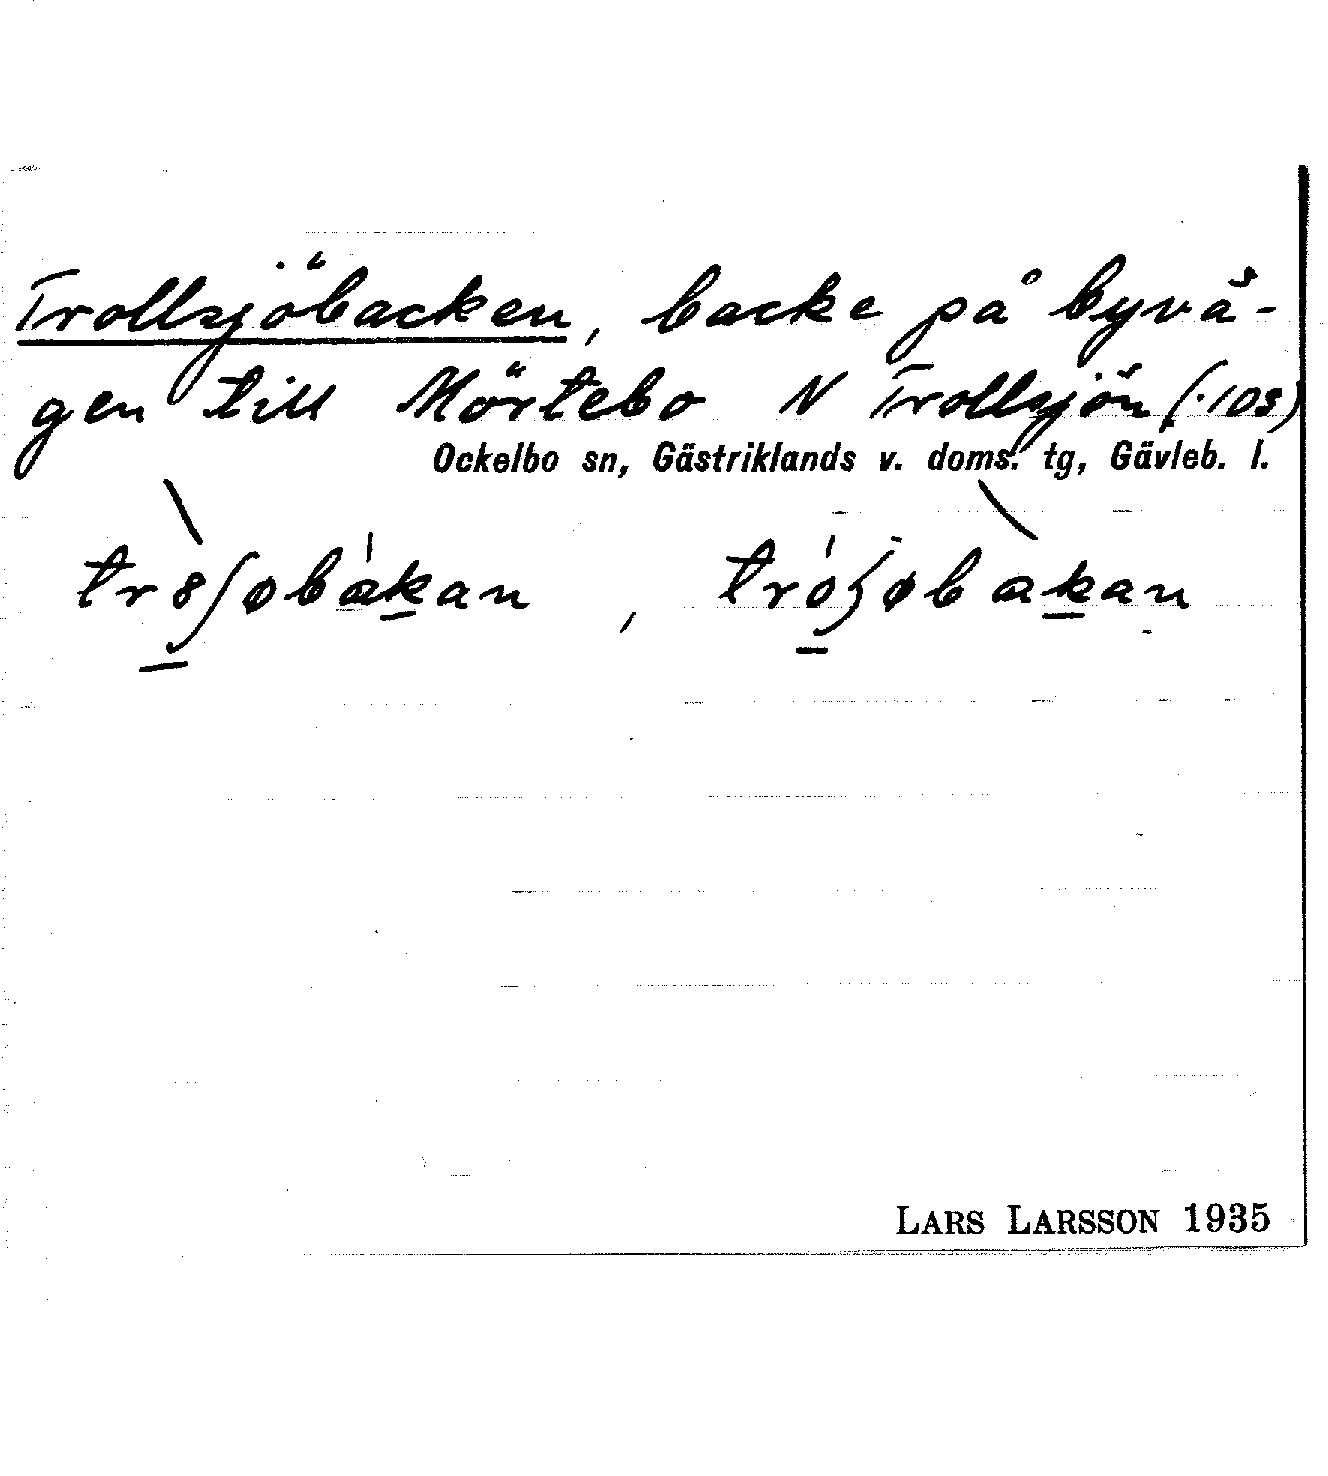 Trollsjöbacken, backe på byvä-
gen till Mörtebo N Trollsjön (·103)
Ockelbo sn, Gästriklands v. doms. tg, Gävleb. l.
LARS LARSSON 1935